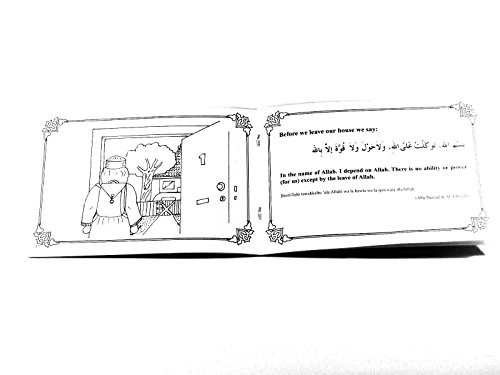 1
Before we leave our house we say:
بسم الله، توكلت على الله، ولا حول ولا قوة إلا بالله
In the name of Allah. I depend on Allah. There is no ability or power
(for us) except by the leave of Allah.
Bismillahi tawakkaltu 'ala Allahi wa la hawla wa la quwwata illa billah.